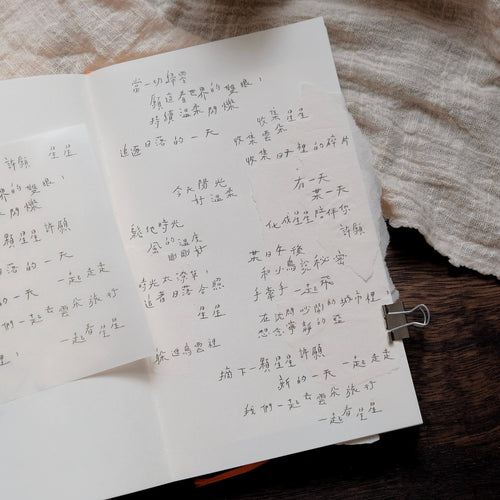 當一切歸零
願這看世界的雙眼，
持續溫柔閃爍
追逐日落的一天
收集星星
收集雲朵
收集日子裡的碎片
今天陽光
好溫柔
有一天
某一天
化成星星陪伴你
許願
鬆弛時光
的溫度
剛剛好
某日午後
和小鳥說秘密
手牽手一起飛
時光太深
追著日落合照
星星
在訪問吵鬧的城市裡
想念寧靜的
躲進烏雲裡
摘下一顆星星許願
新的一天 一起走走
我們一起去雲朵旅行
一起看星星
許願 星星
界的雙眼，
閃爍
顆星星許願
日落的一天
的一天 一起走走
們一起去雲朵旅行
一起看星星
裡，